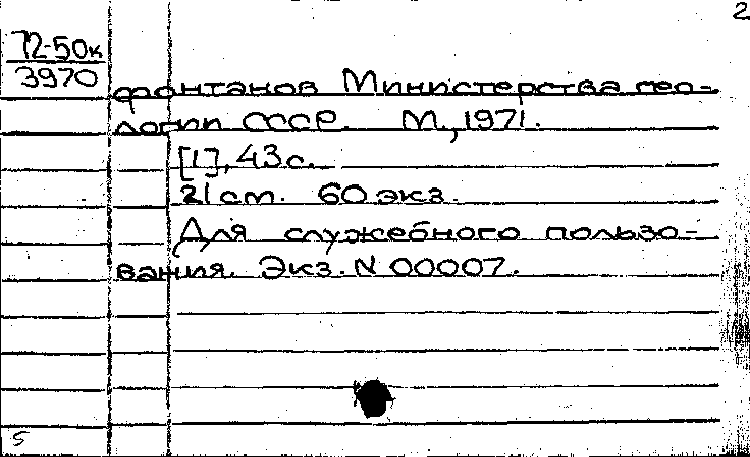 2
72-50к
3970
фонтанов Министерства гео-
логии СССР. М., 1971.
[1], 43 с.
21 см. 60 экз.
Для служебного пользо-
вания. Экз. N 00007.
5